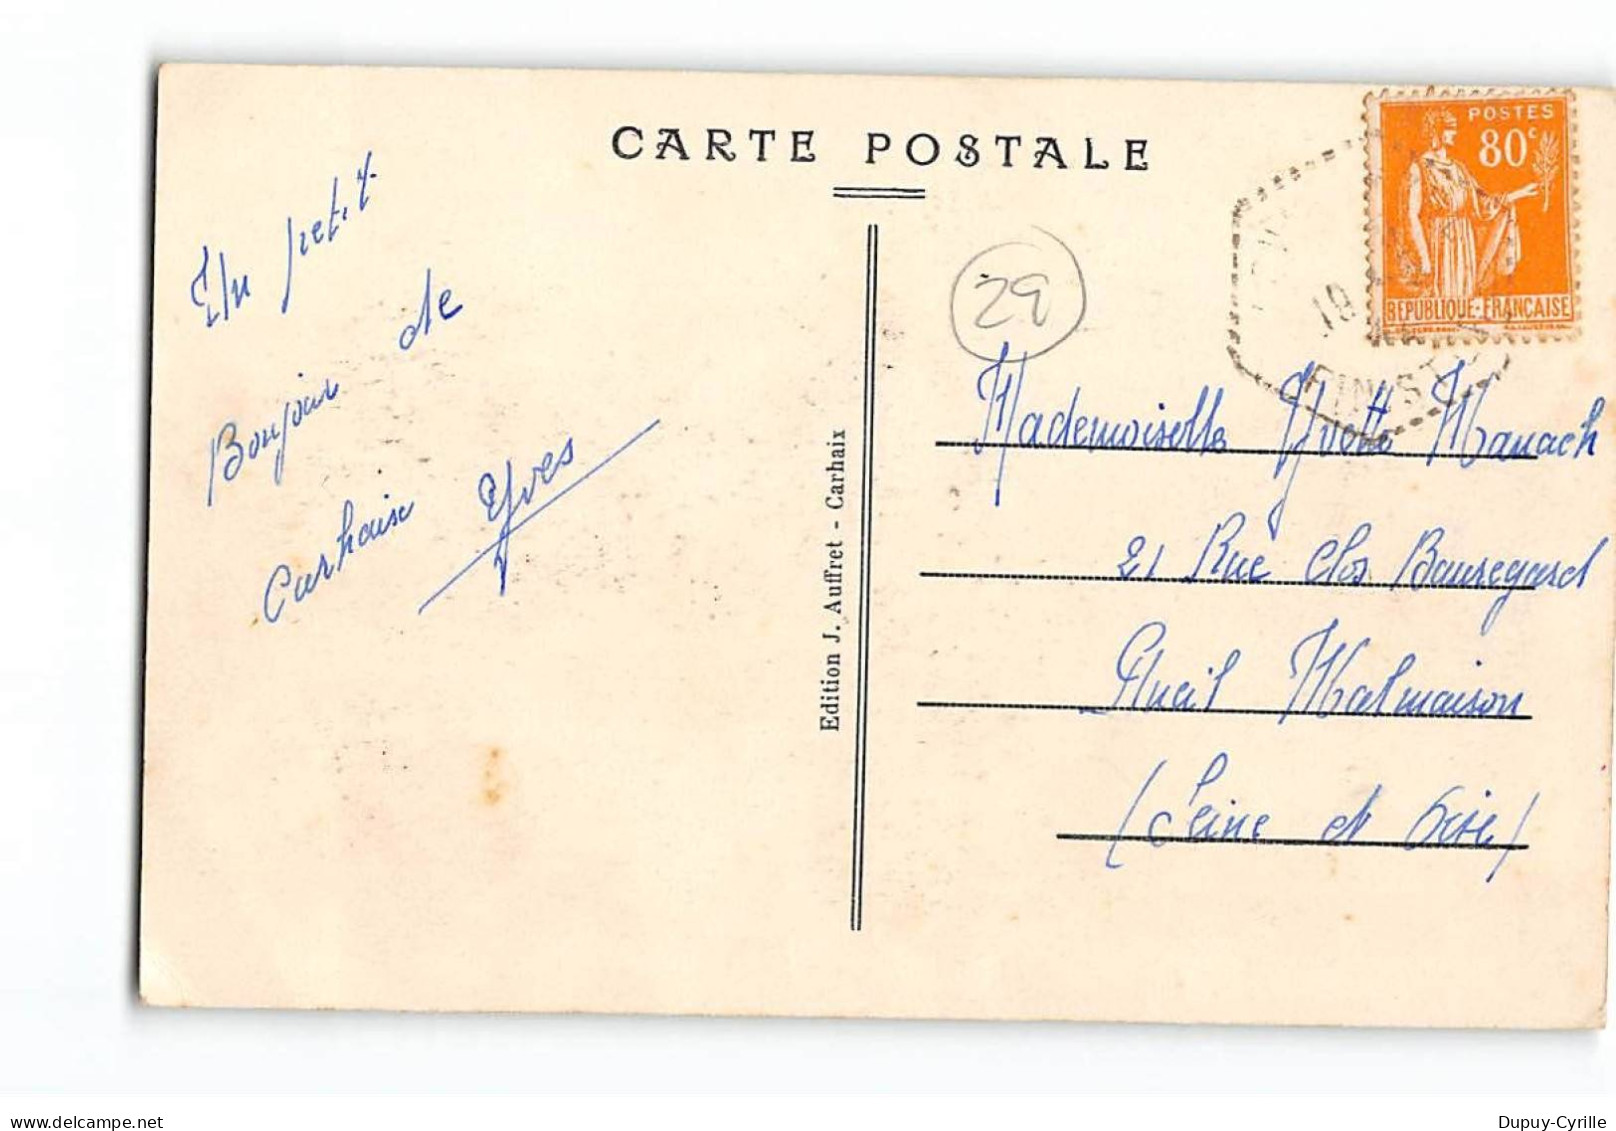 CARTE POSTALE
POSTES
80c
REPUBLIQUE-FRANÇAISE
18
FINIST
29
Un petit
Bonjour de
Carhaix Yves
Edition J. Auffret - Carhaix
Mademoiselle Yvette Manach
21 Rue Clos Beauregard
Rueil Malmaison
(Seine et Oise)
Dupuy-Cyrille